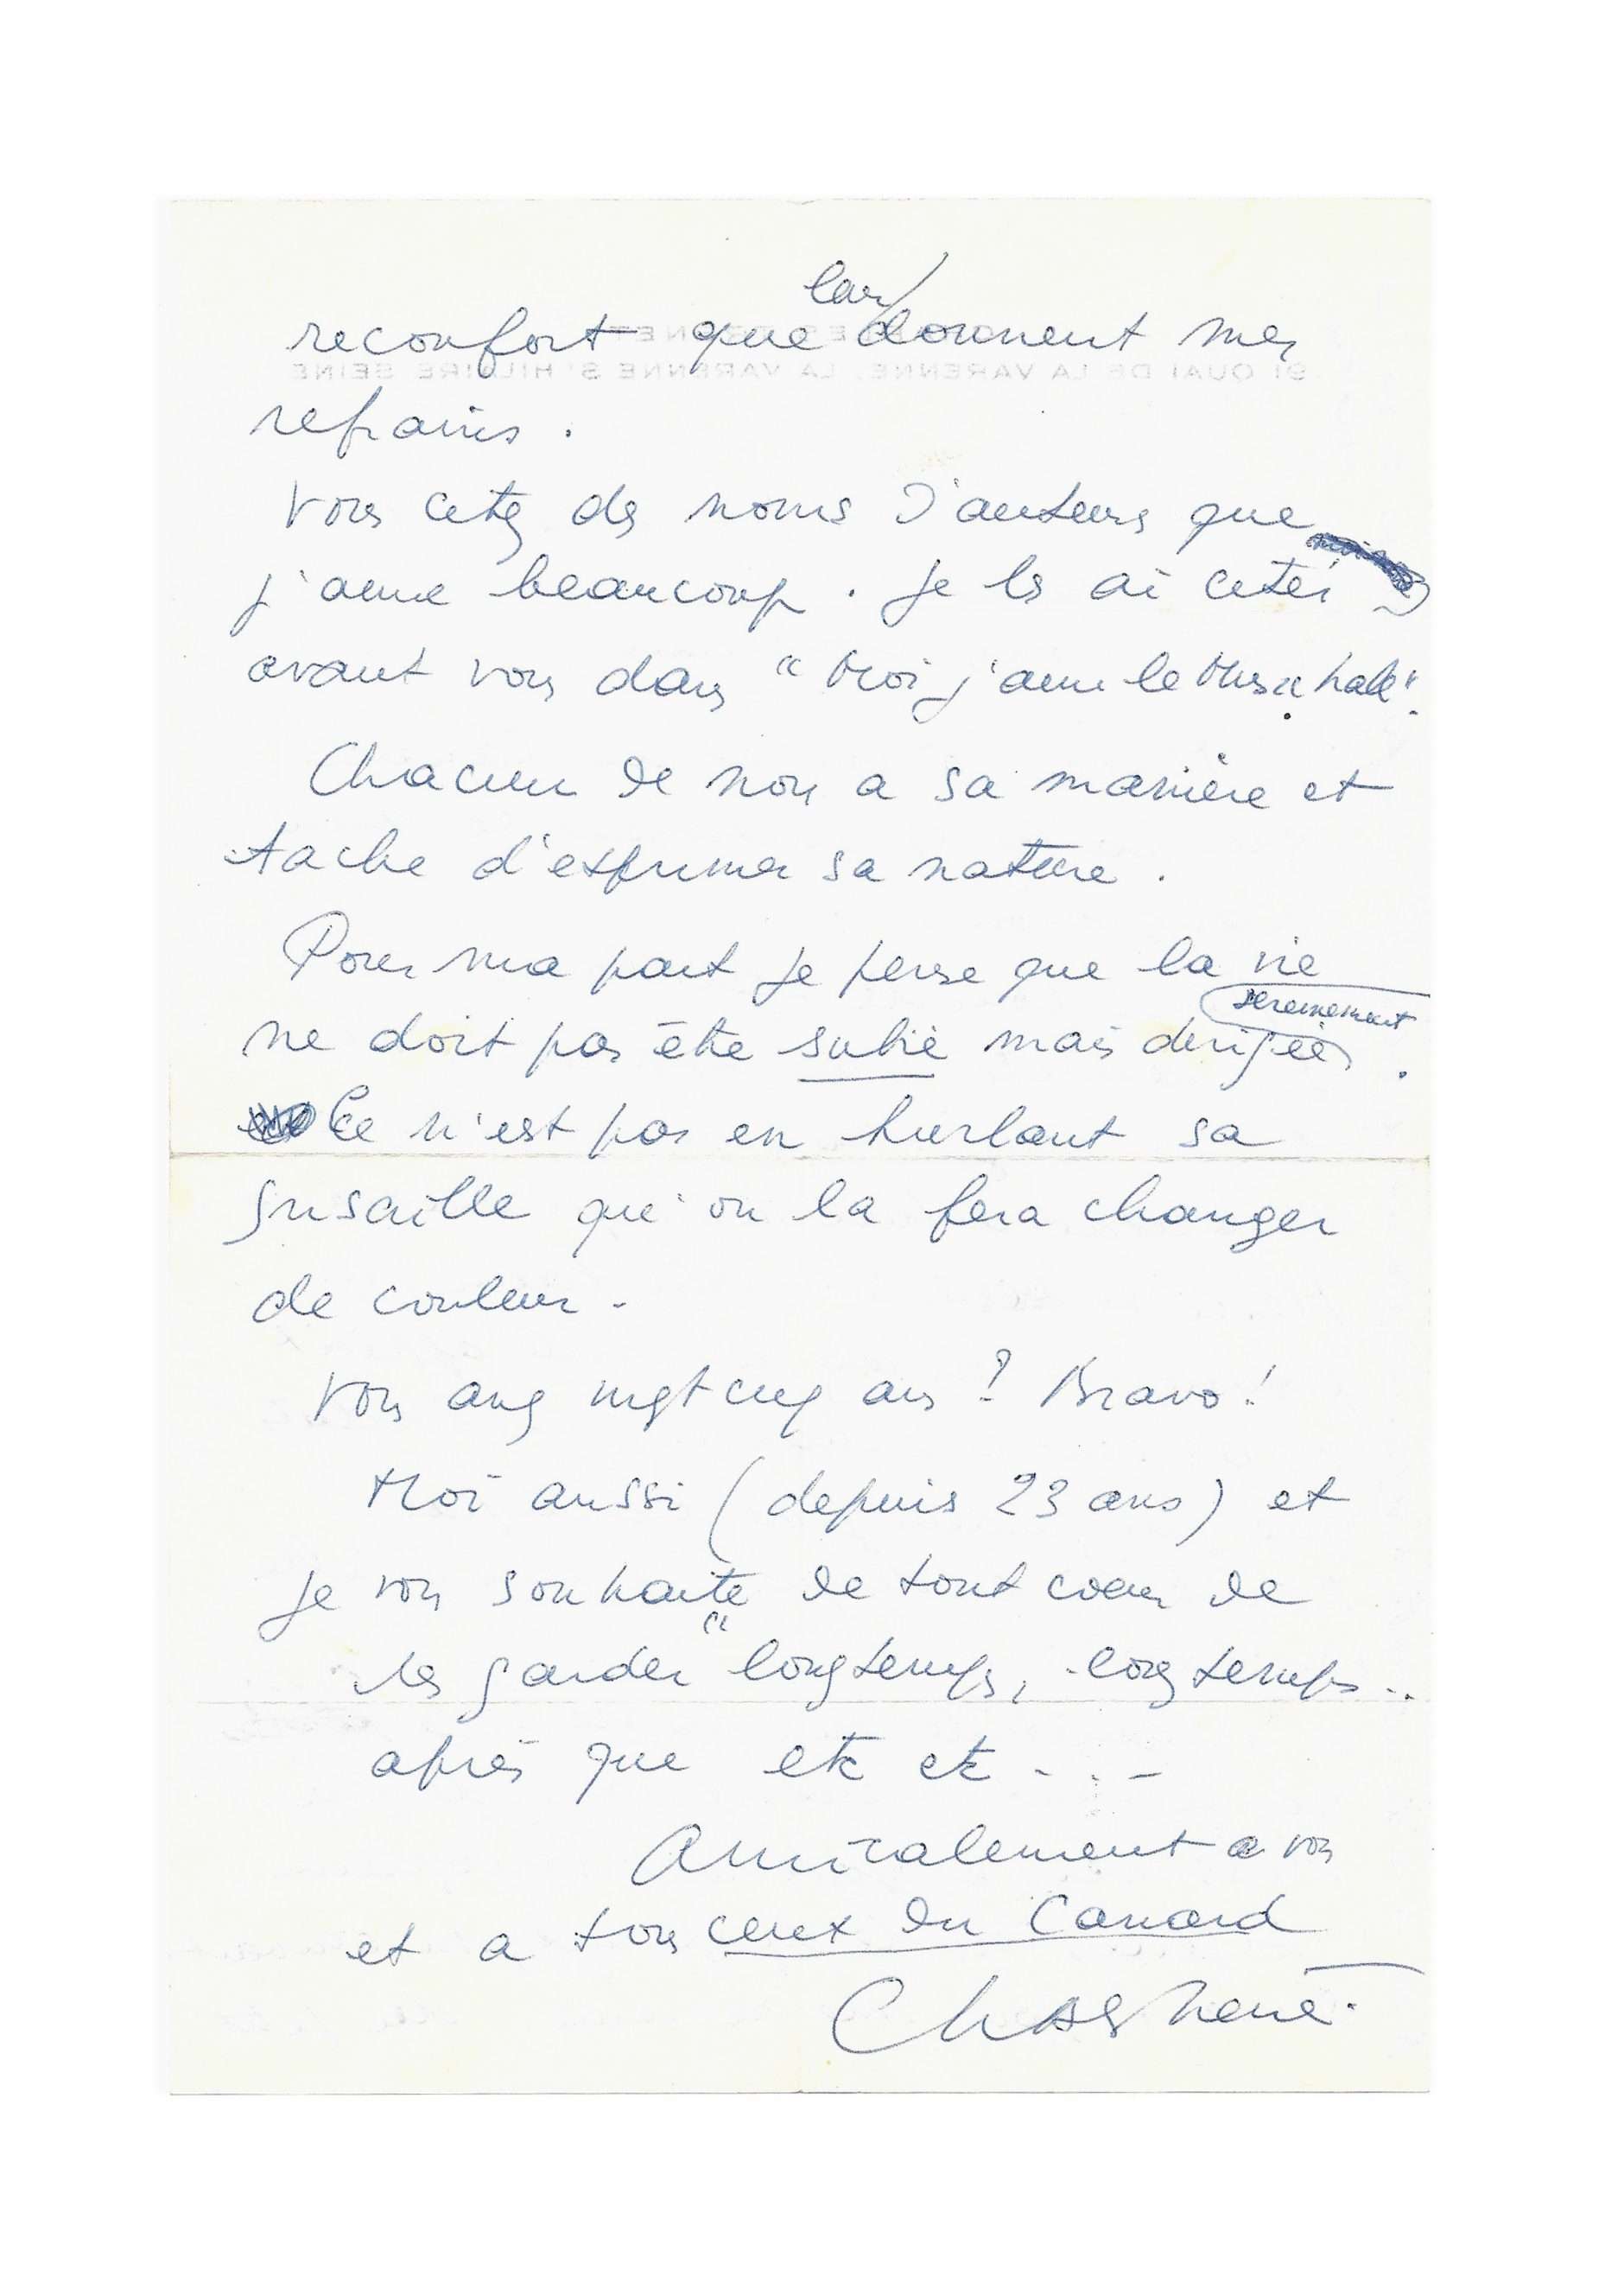 reconfort que leur donnent mes
refrains .
Vous citez des noms d'auteurs que
j'aime beaucoup . Je les ai cités
avant vous dans "Moi j'aime le Music hall".
Chacun de nous a sa manière et
tache d'exprimer sa nature .
Pour ma part je pense que la vie
ne doit pas être subie mais dirigée sereinement .
Ce n'est pas en hurlant sa
grisaille qu'on la fera changer
de couleur .
Vous avez vingt cinq ans ? Bravo !
Moi aussi (depuis 23 ans) et
je vous souhaite de tout coeur de
les garder "longtemps, longtemps ..
après que etc etc . . . _
Amicalement a vous
et a tous ceux du Canard
Chs Trenet .
91 QUAI DE LA VARENNE. LA VARENNE St HILAIRE SEINE